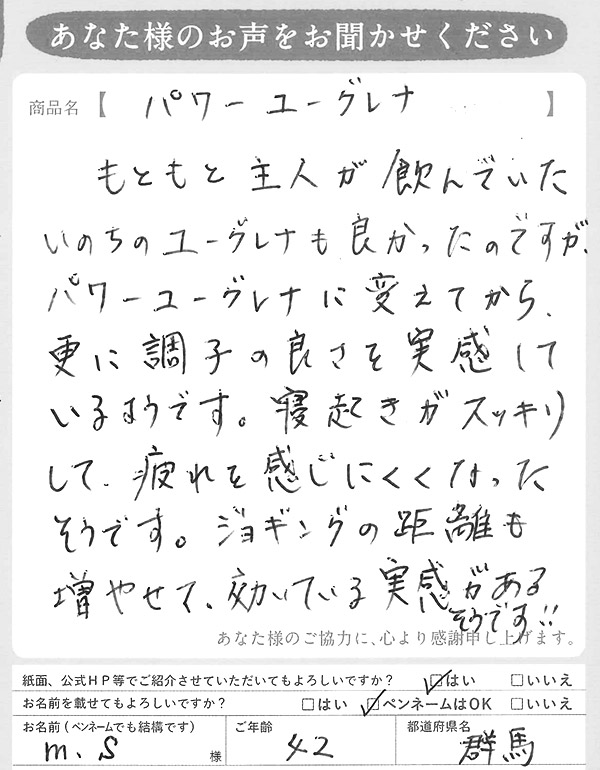 あなた様のお声をお聞かせください
商品名【 パワーユーグレナ 】
もともと主人が飲んでいた
いのちのユーグレナも良かったのですが、
パワーユーグレナに変えてから、
更に調子の良さを実感して
いるようです。寝起きがスッキリ
して、疲れを感じにくくなった
そうです。ジョギングの距離も
増やせて、効いている実感がある
そうです!!
あなた様のご協力に、心より感謝申し上げます。
紙面、公式HP等でご紹介させていただいてもよろしいですか? ☑はい □いいえ
お名前を載せてもよろしいですか? □はい ☑ペンネームはOK □いいえ
お名前(ペンネームでも結構です) ご年齢 都道府県名
m.s 様 42 群馬